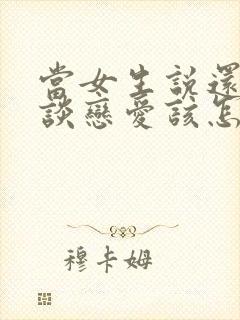 當女生說還
談戀愛該怎
穆卡姆